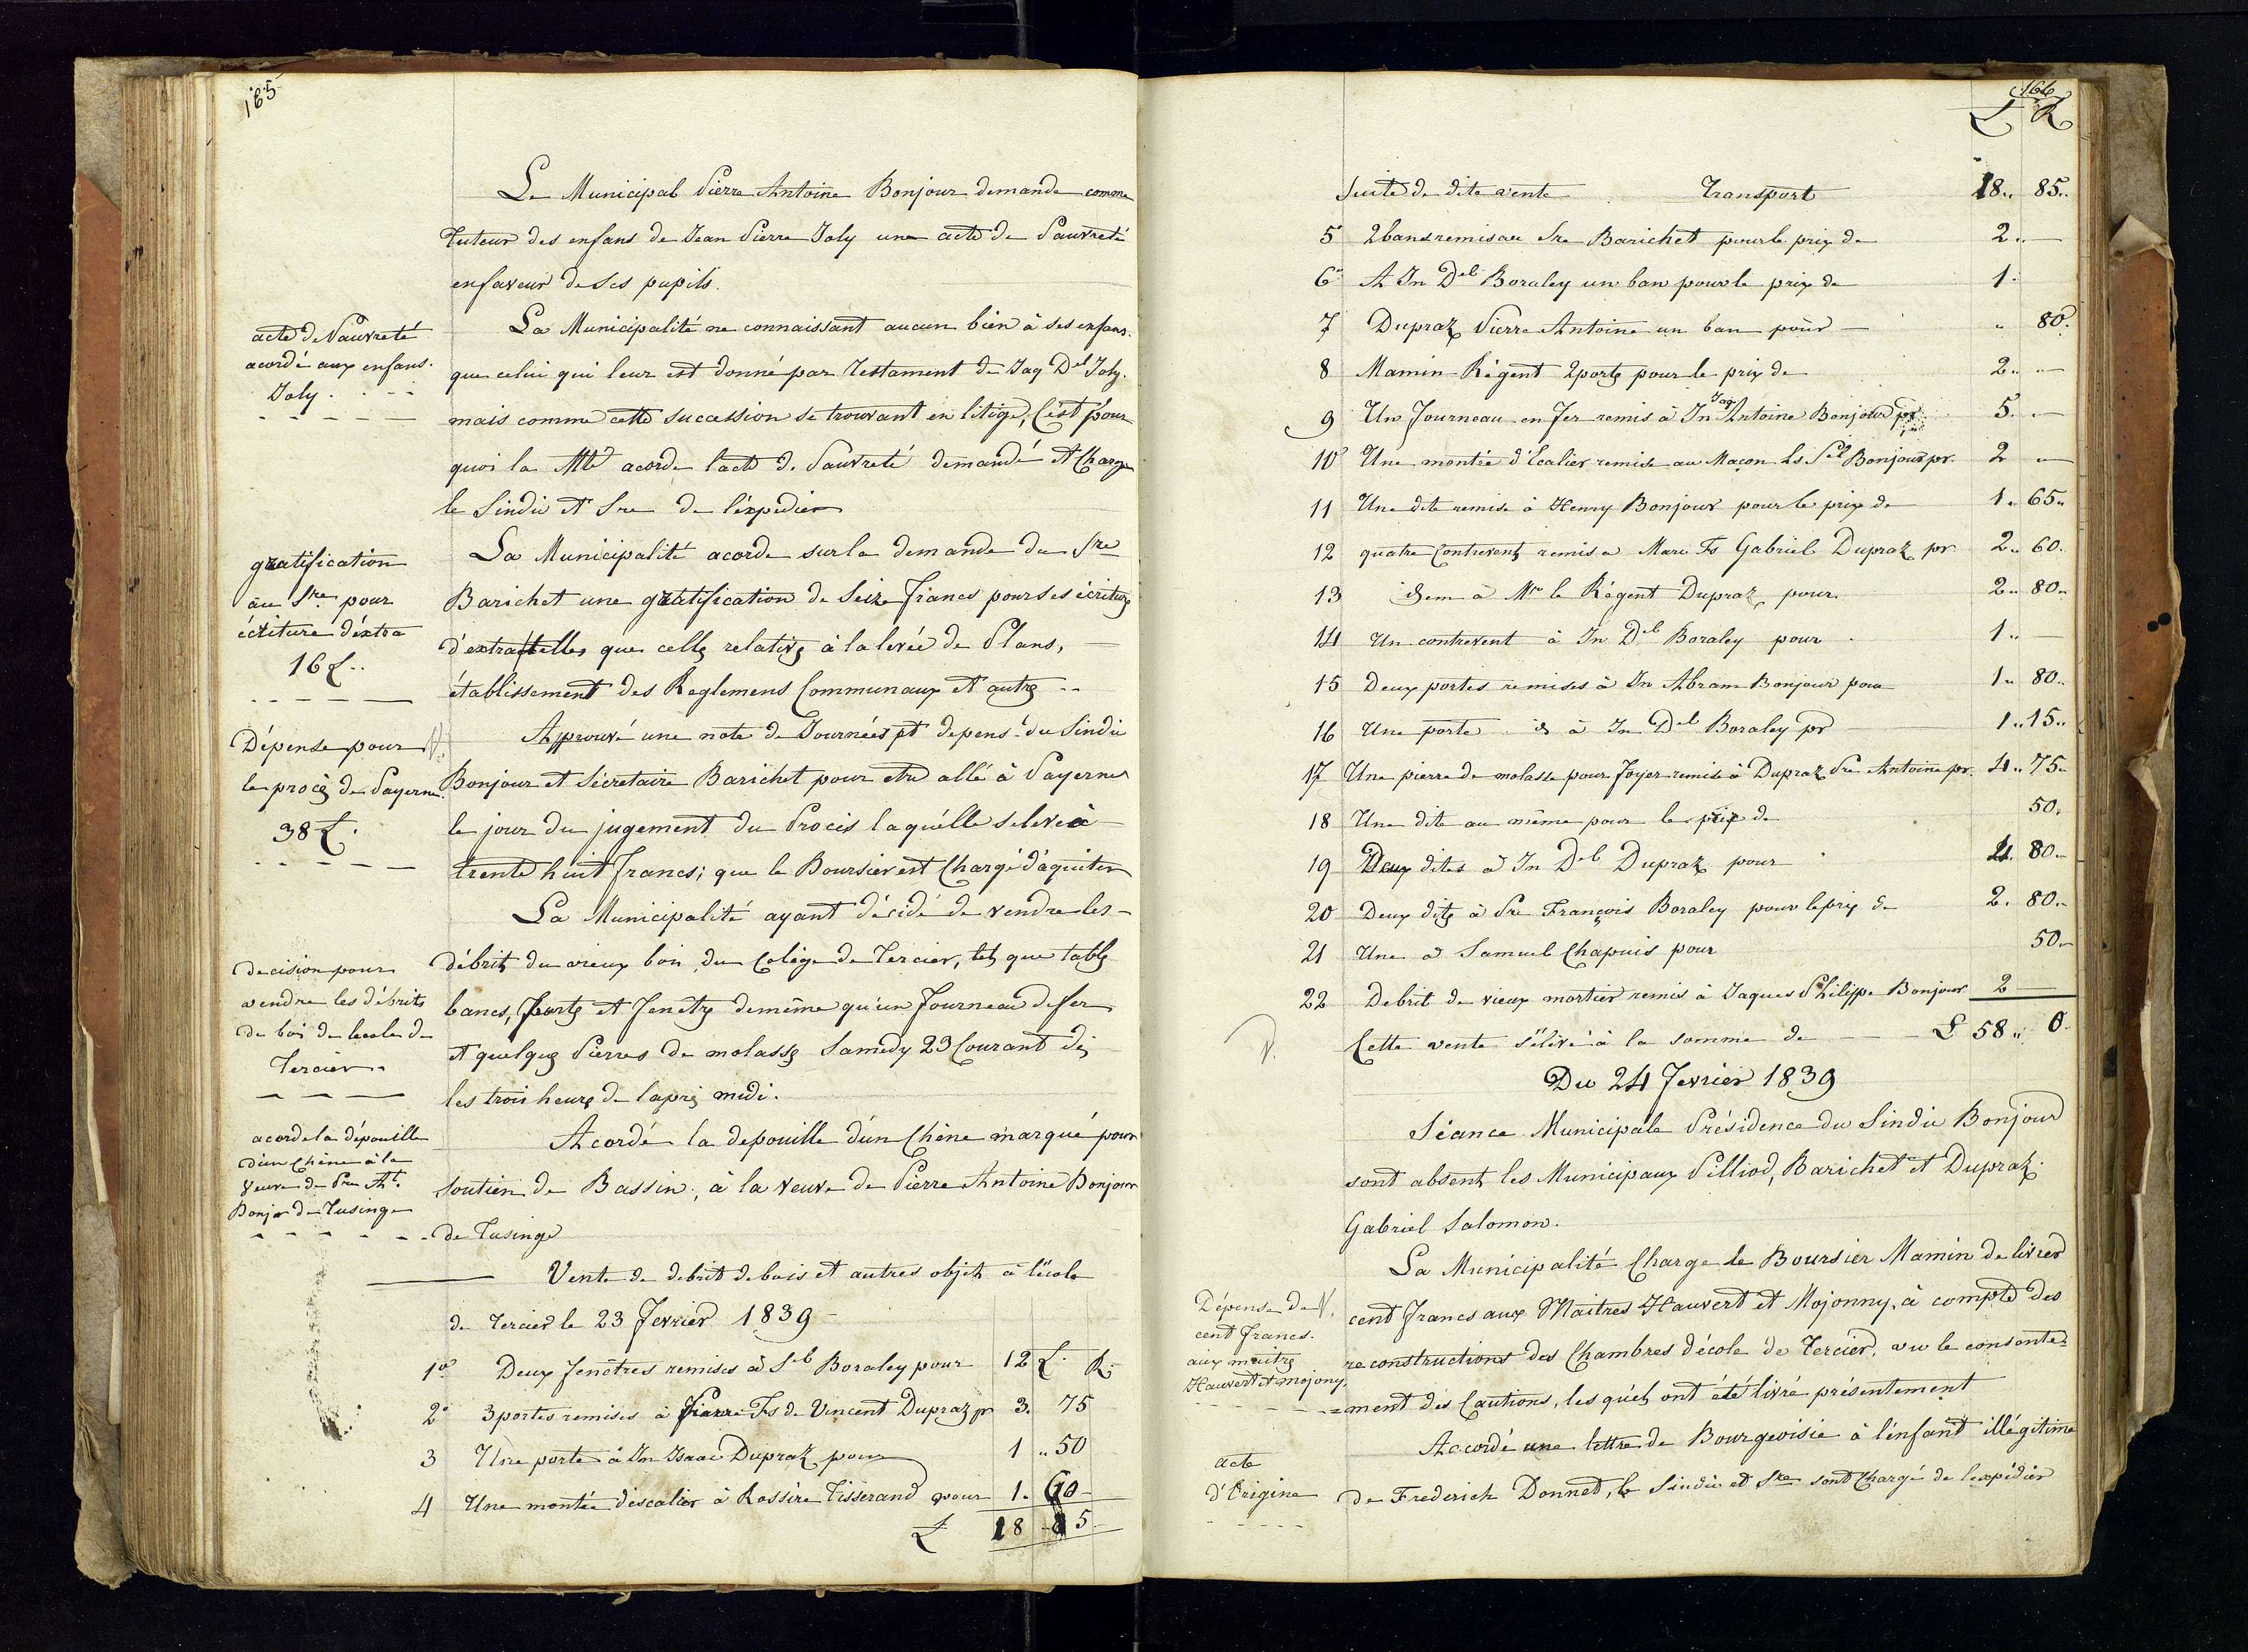 165
Le Municipal Pierre Antoine Bonjour demande comme
Tuteur des enfans de Jean Pierre Joly une acte de Pauvreté
enfaveur de ses pupils.
acte de Pauvreté
acordé aux enfans.
Joly.
La Municipalité ne connaissant aucun bien à ses enfans.
que celui qui leur est donné par Testament de Jaq Del Joly.
mais comme cette succession se trouvant en litige, C'est pour
quoi la Mté acorde l'acte de Pauvreté demandé et Charge
le Sindic et Sre de l'éxpedier
gratification
au Sre pour
écriture d'éxtra
16 L..
La Municipalité acorde sur la demande du Sre
Barichet une gratification de Seize francs pour ses écritures
d'extra telles que celles relatives à la levée de Plans,
établissement des Reglemens Communaux et autres ..
Dépense pour
le procès de Payerne.
38 L.
Approuvé une note de Journées et depens. du Sindic
Bonjour et Sécretaire Barichet pour etre allé à Payerne
le jour du jugement du Procès laquélle seleve à
trente huit francs; que le Boursier est Chargé d'aquiter
La Municipalité ayant décidé de vendre les
decision pour
vendre les débrits
de bois de lecole de
Tercier.
débrits du vieux bois du Colège de Tercier, tels que tables
bancs, portes et fenêtres demême qu'un fourneau de fer
et quelques Pierres de molasses Samedy 23 Courant dès
les trois heures de l'après midi.
acorde la dépouille
d'un Chêne à la
Veuve de Pre At.
Bonjr de Tusinge
Acordé la depouille d'un Chêne marqué pour
soutien de Bassin, à la veuve de Pierre Antoine Bonjour
de Tusinge
Vente de debrit de bois et autres objets à l'école
de Tercier le 23 Fevrier 1839
1° Deux fenêtres remises à Sel Boraley pour 12 L. R.
2° 3 portes remises à Pierre Fs de Vincent Dupraz pr 3. 75
3 Une porte à Jn Isaac Dupraz pour 1 .. 50
4 Une montée d'escalier à Rossire Tisserand pour 1. 60
L 18 .. 85
166
L R
Suite de dite vente Transport 18.. 85..
5 2 bans remis au Sre Barichet pour le prix de 2..
6 A Jn Del Boraley un ban pour le prix de 1.
7 Dupraz Pierre Antoine un ban pour .. 80.
8 Mamin Régent 2 portes pour le prix de 2..
9 Un fourneau en fer remis à Jn Jaq Antoine Bonjour pr 5.
10 Une montée d'Ecalier remise au Maçon Ls Sel Bonjour pr. 2
11 Une dite remise à Henry Bonjour pour le prix de 1.. 65..
12 quatre Contrevents remis a Marc Fs Gabriel Dupraz pr 2.. 60.
13 idem à Mr le Régent Dupraz, pour 2.. 80..
14 Un contrevent à Jn Del Boraley pour 1..
15 Deux portes remises à Jn Abram Bonjour pour 1.. 80..
16 Une porte id à Jn Del Boraley pr 1.. 15..
17 Une pierre de molasse pour foyer remise à Dupraz Pre Antoine pr. 4.. 75..
18 Une dite au même pour le prix de 50.
19 Deux dites à Jn Del Dupraz pour 4. 80..
20 Deux dites à Pre François Boraley pour le prix de 2. 80..
21 Une à Samuel Chapuis pour 50..
22 Debrit de vieux mortier remis à Jaques Philippe Bonjour 2
Cette vente s'élève à la somme de L 58.. 0
Du 24 Fevrier 1839
Séance Municipale Présidence du Sindic Bonjour
sont absents les Municipaux Pilliod, Barichet et Dupraz
Gabriel Salomon.
Dépense de
cent francs.
aux maitres
Hauvert et mojony.
La Municipalité Charge le Boursier Mamin de livrer
cent francs aux Maitres Hauvert et Mojonny, à compte des
reconstructions des Chambres d'école de Tercier, vu le consente=
=ment des Cautions, les quéls ont été livré présentement
acte
d'Origine
Accordé une lettre de Bourgeoisie à l'énfant illégitime
de Frederich Donnet, le Sindic et Sre sont Chargé de l'expédier